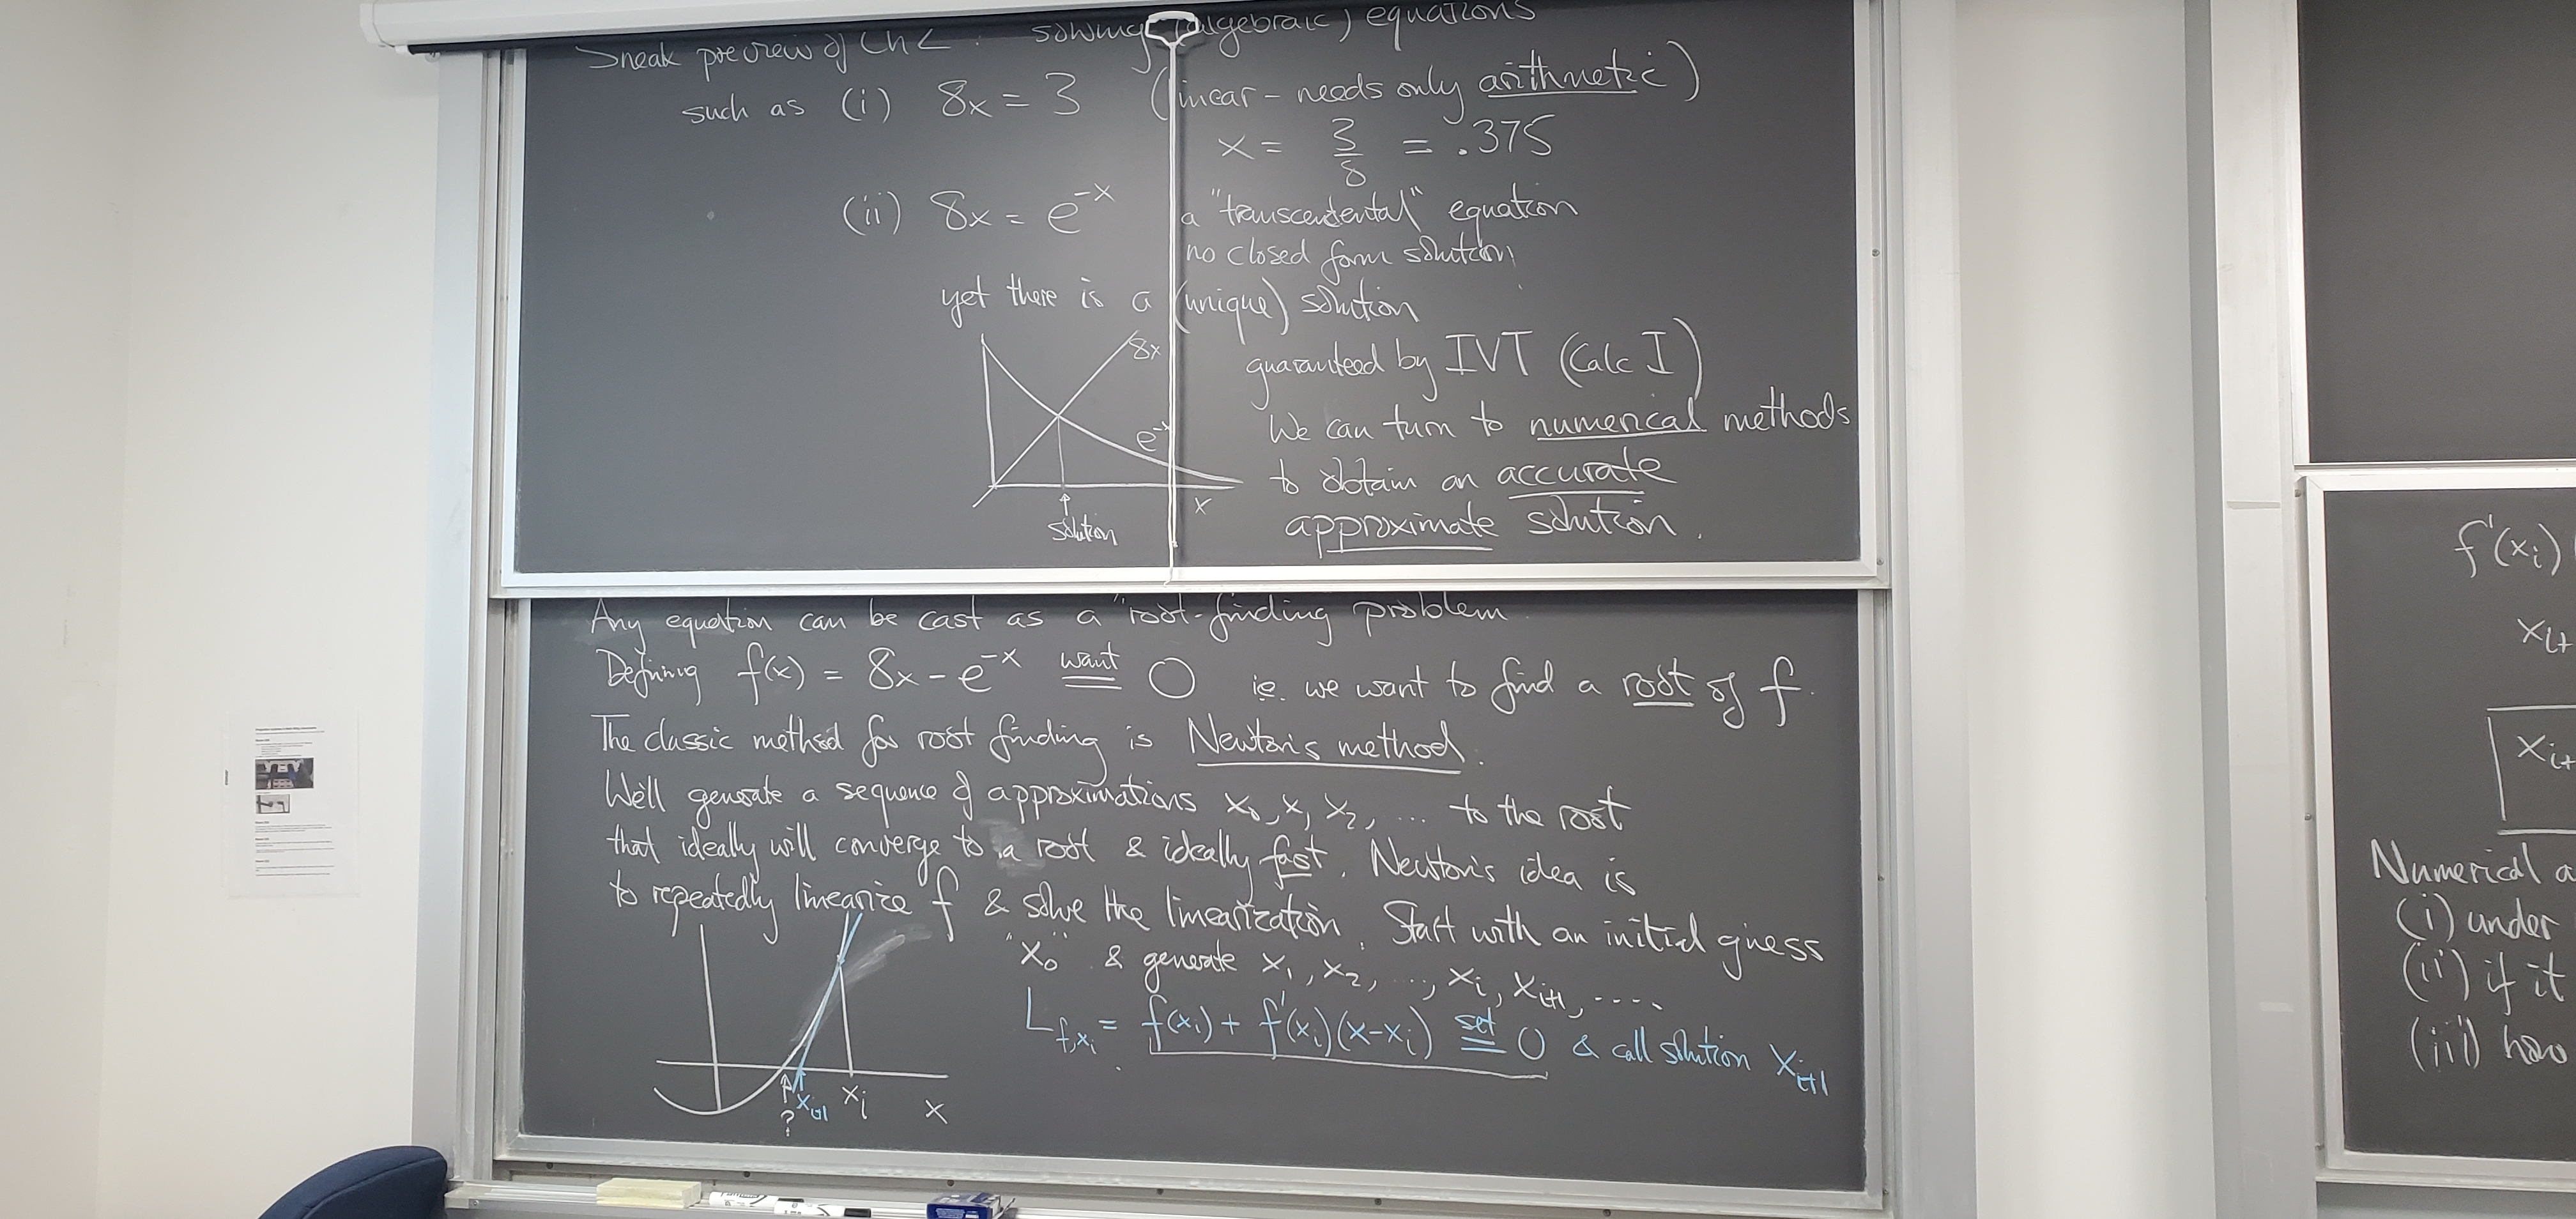 Sneak preview of Ch 2: solving (algebraic) equations
such as (i) 8x = 3 (linear - needs only arithmetic)
x = 3/8 = .375
(ii) 8x = e^-x a "transcendental" equation
no closed form solution
yet there is a (unique) solution
8x
guaranteed by IVT (Calc I)
We can turn to numerical methods
e^-x
to obtain an accurate
x
approximate solution.
solution
Any equation can be cast as a "root-finding problem
Defining f(x) = 8x - e^-x want = 0 ie. we want to find a root of f.
The classic method for root finding is Newton's method.
We'll generate a sequence of approximations x_0, x_1, x_2, ... to the root
that ideally will converge to a root & ideally fast. Newton's idea is
to repeatedly linearize f & solve the linearization. Start with an initial guess
"x_0" & generate x_1, x_2, ..., x_i, x_i+1, ....
L_f,x_i = f(x_i) + f'(x_i)(x-x_i) set = 0 & call solution x_i+1
? x_i+1 x_i x
f'(x_i)
x_i+
x_i+
Numerical a
(i) under
(ii) if it
(iii) how